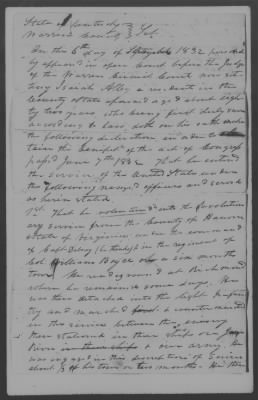 State of Kentucky
Warren County Sct.
On this 6th day of 1832 personally
appeared in open Court before the Judge
of the Warren Circuit Court now sit
ting Isaiah Alley a resident in the
County & State aforesaid aged about eigh
ty two years who being first duly sworn
according to Law, doth on his oath make
the following declaration in order to ob
tain the benefit of the act of Congress
passed June 7th 1832 That he entered
the service of the United States under
the following named officers and served
as herein stated.
1st That he volunteered into the Revolution
ary service from the County of Hanover
State of Virginia under the command
of Capt in the regiment of
Col William on a six months
tour. He rendezvoused at Richmond
where he remained some days. He
was then detached into the light Infan
try and marched & countermarched
in this service between the enemy
then stationed in their ships on James
River & our army. He
was engaged in this description of service
about of his tour or two months. He then